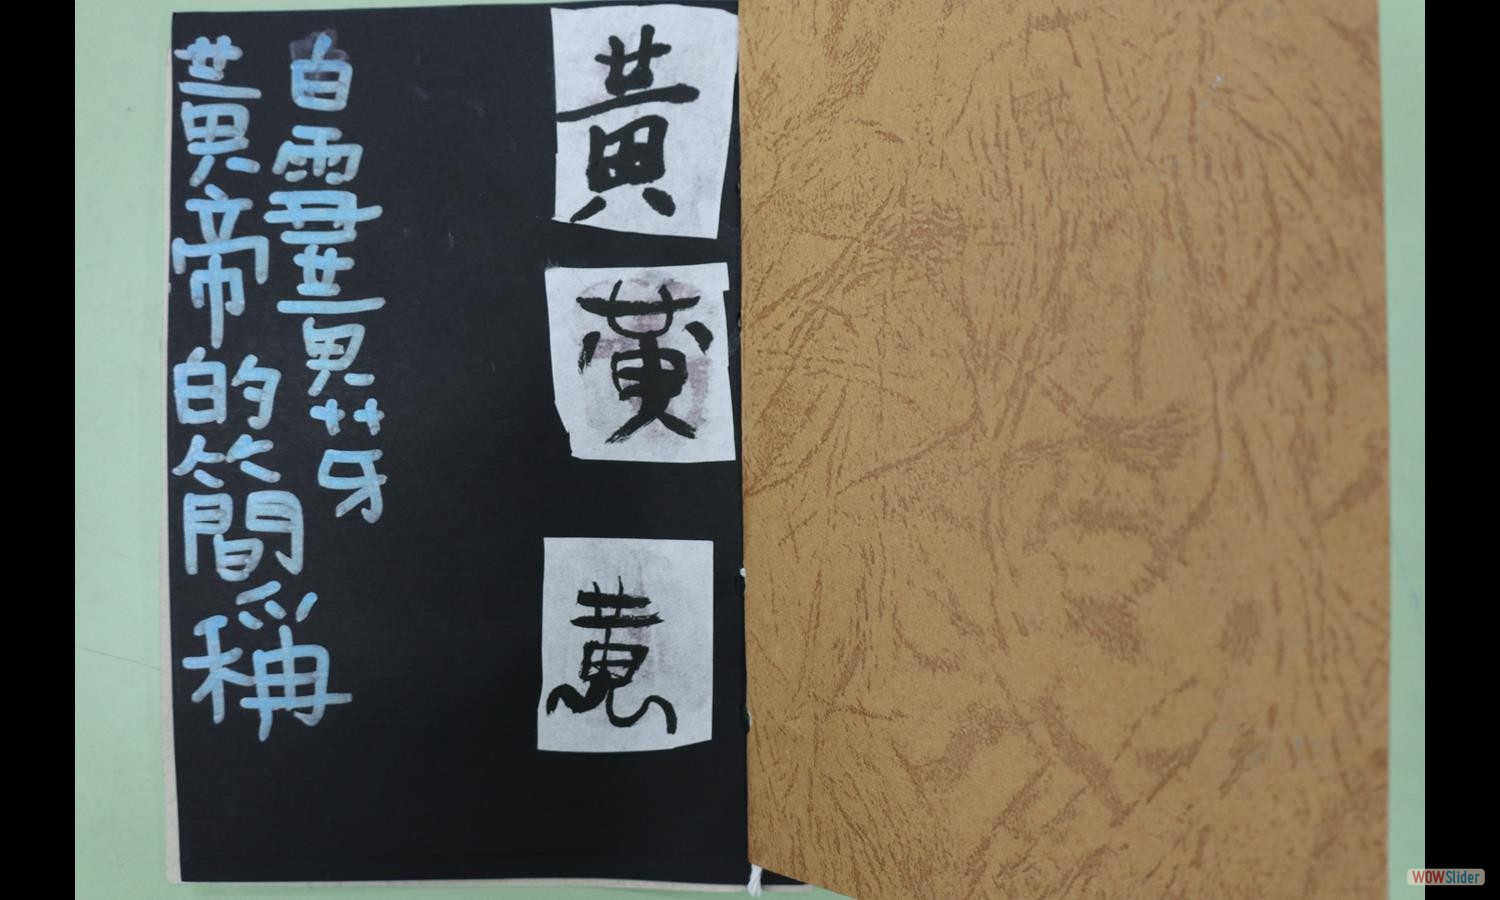 黃
黃
黃
白雪黃芽
黃帝的簡稱
WOWSlider